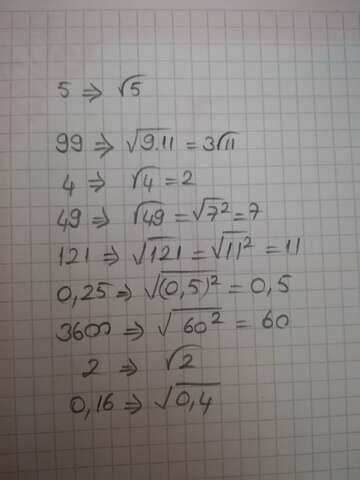 5 ⇒ √5
99 ⇒ √9.11 = 3√11
4 ⇒ √4 = 2
49 ⇒ √49 = √7² = 7
121 ⇒ √121 = √11² = 11
0,25 ⇒ √(0,5)² = 0,5
3600 ⇒ √60² = 60
2 ⇒ √2
0,16 ⇒ √0,4